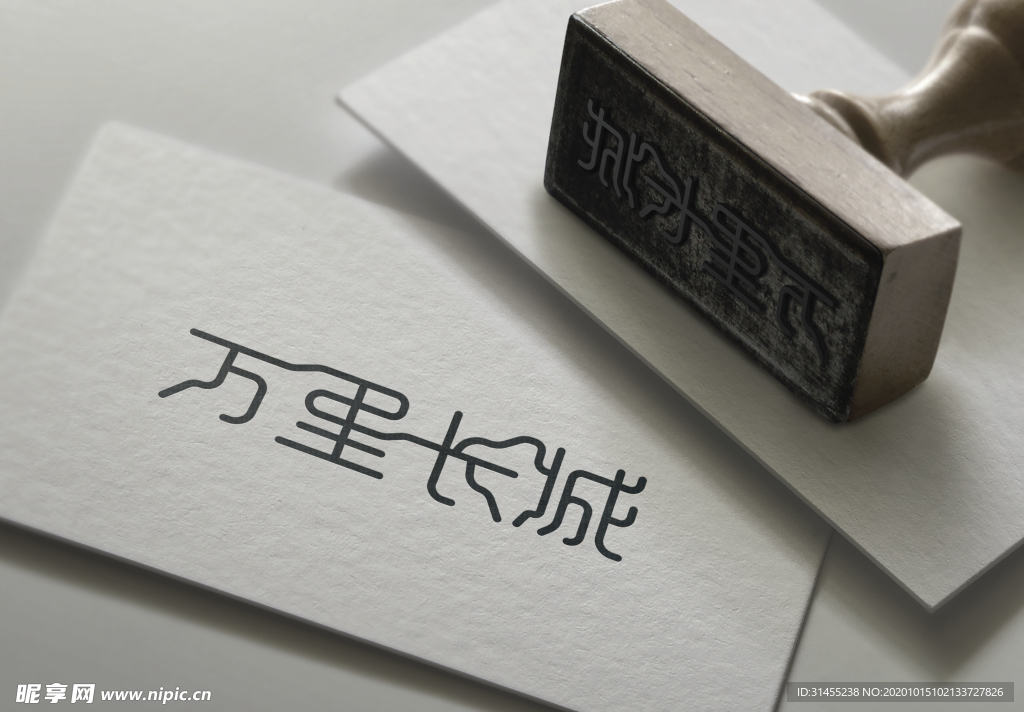 万里长城
万里长城
昵享网 www.nipic.cn
ID:31455238 NO:20201015102133727826